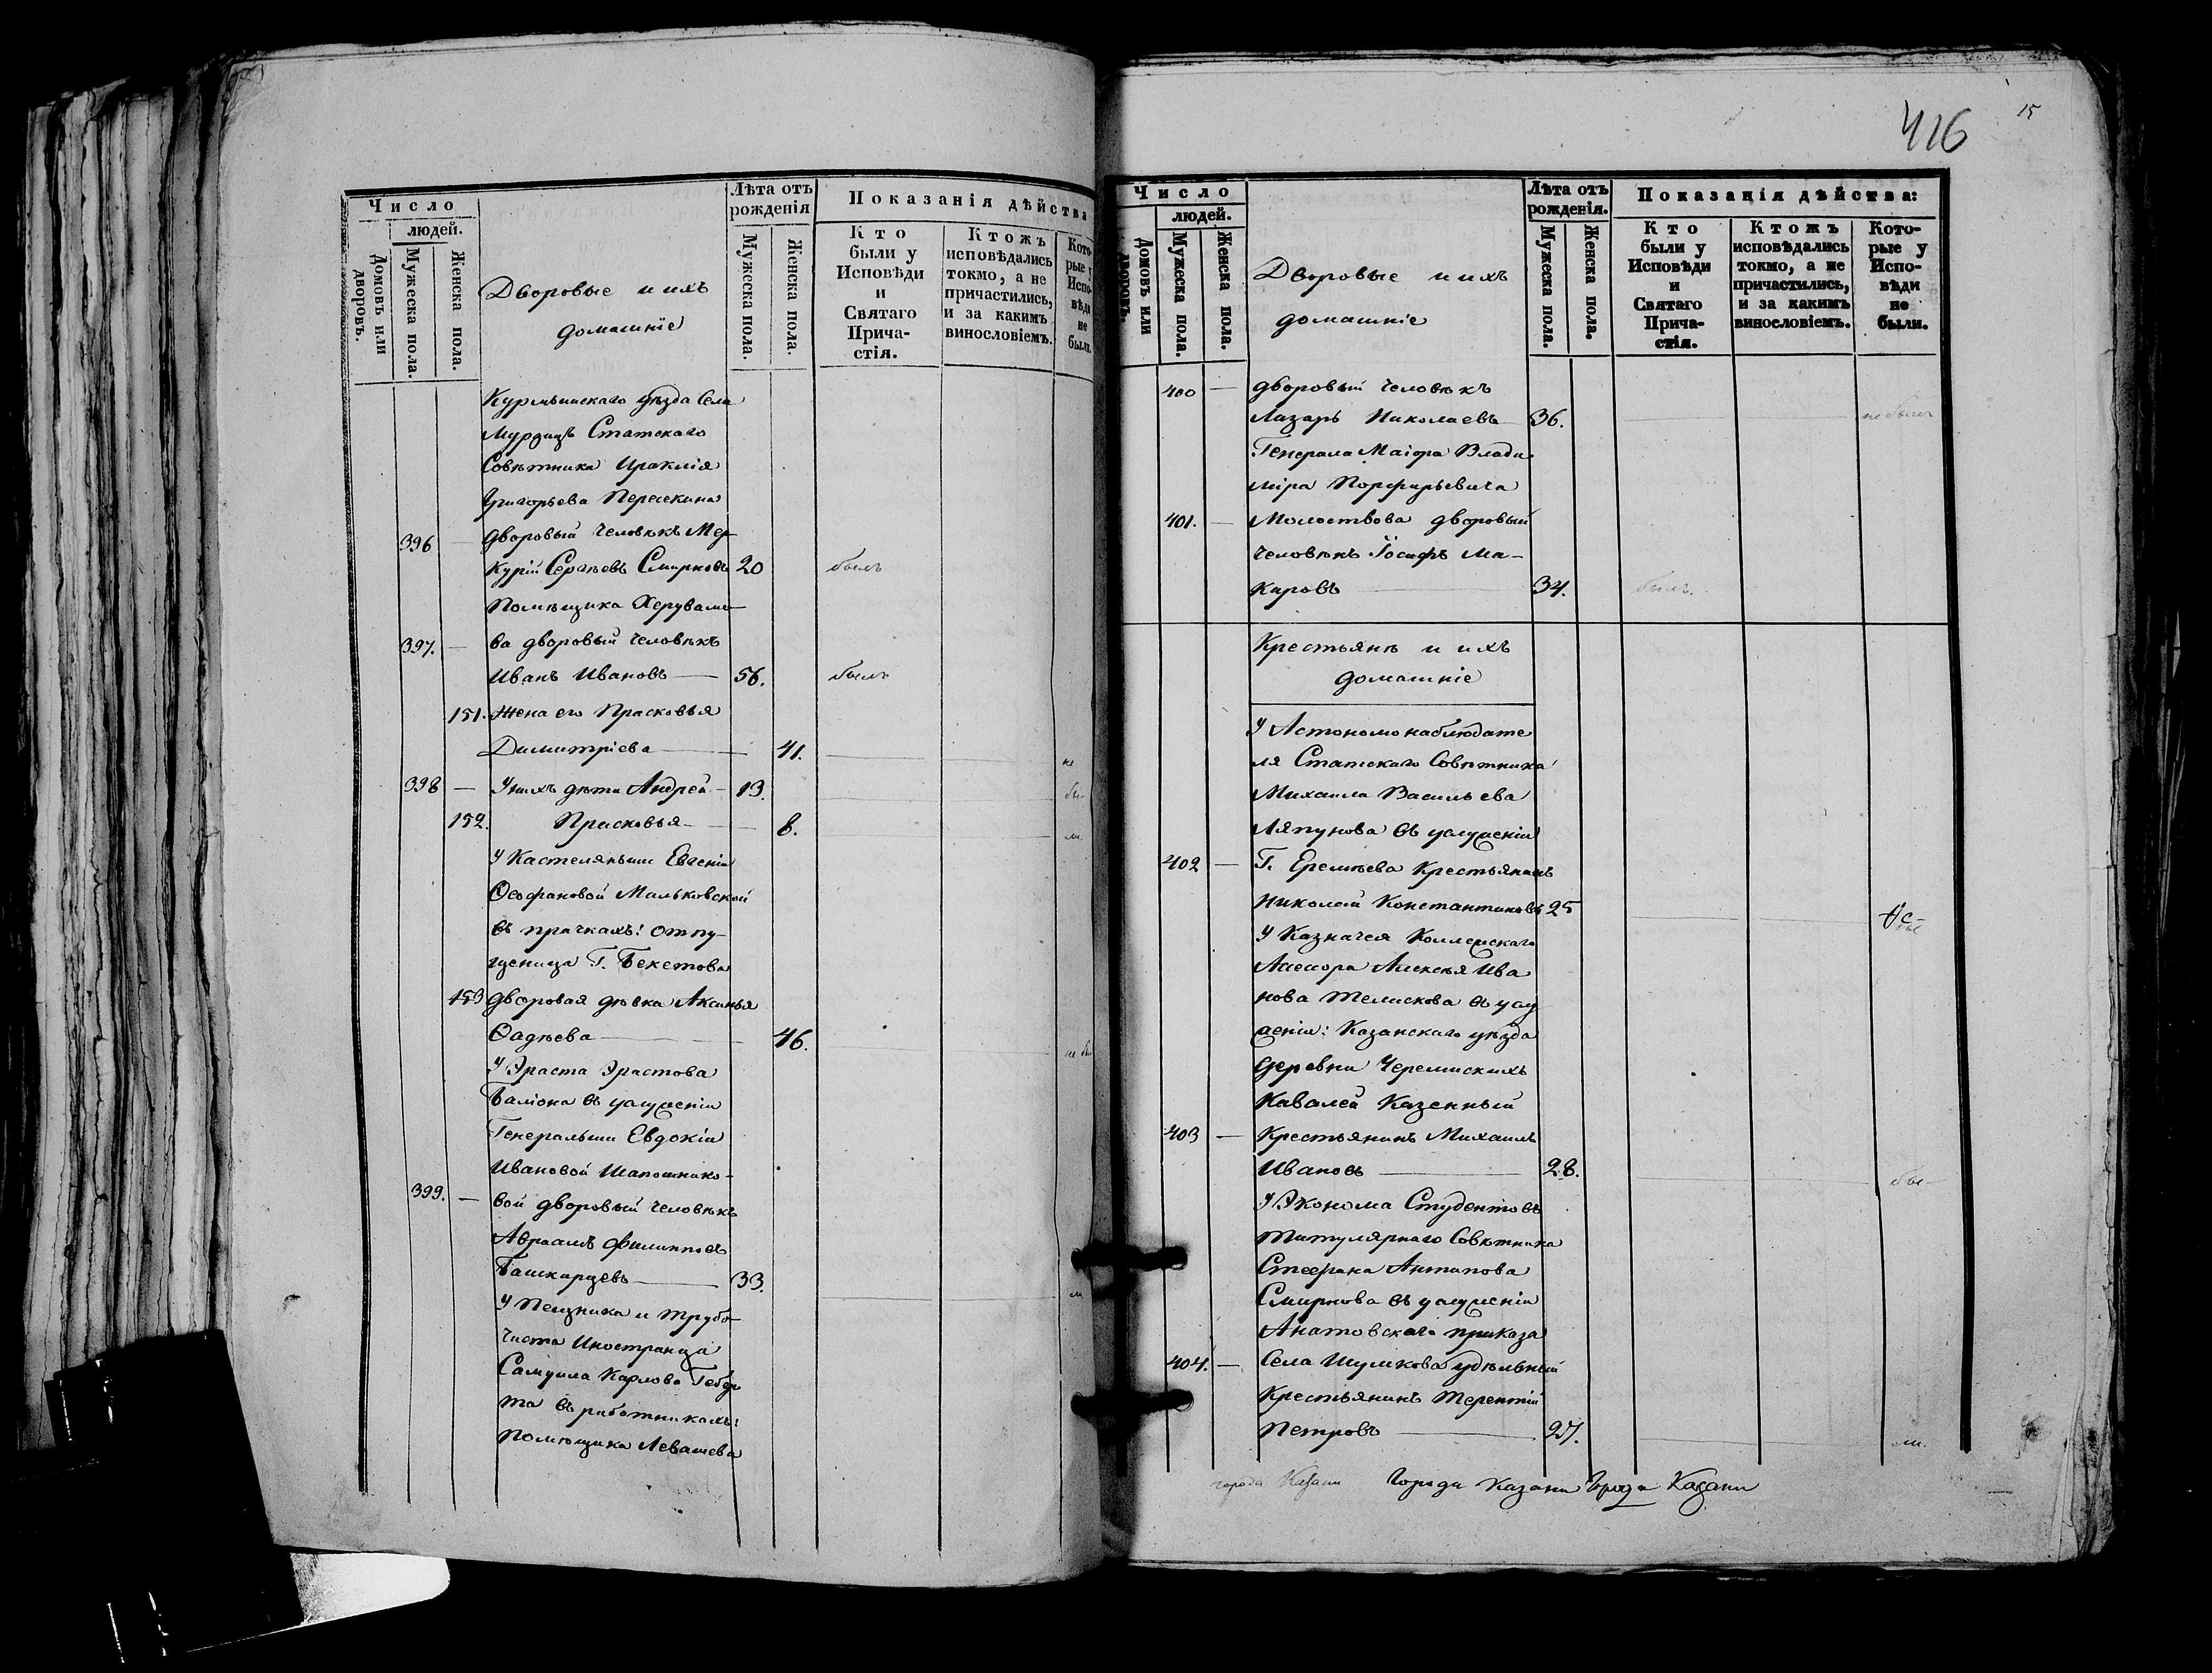 Число
людей.
Домовъ или дворовъ.
Мужеска пола.
Женска пола.
Дворовые и ихъ
домашніе
Лѣта отъ
рожденія
Мужеска пола.
Женска пола.
Показанія дѣйства
Кто
были у
Исповѣди
и
Святаго
Прича-
стія.
Ктожъ
исповѣдались
токмо, а не
причастились,
и за какимъ
винословіемъ.
Кото-
рые у
Испо-
вѣди
не
были.
Курмышскаго уѣзда Села
Статскаго
Совѣтника Ираклія
Григорьева
396 — дворовый человѣкъ Мер-
курій Сергѣевъ Смирновъ 20 былъ
Помѣщика
397. — ва дворовый человѣкъ
Иванъ Ивановъ — 56. былъ
151. Жена его Прасковья
Димитріева — 41. не
398 — У нихъ дѣти Андрей — 13. бы-
152. Прасковья — 8. ли
У Кастелянши Евгеніи
Ѳеофановой Мальковской
въ прачкахъ: отпу-
щеница Г. Бекетова
153 дворовая дѣвка Аксинья
Ѳадѣева — 46. не бы
У Эраста Эрастова
въ услуженіи
Генеральши Евдокіи
Ивановой Шапошнико-
399. — вой дворовый человѣкъ
Авраамъ Филипповъ
33. ли
У Печника и трубо-
чиста Иностранца
Самуила Карлова
та въ работникахъ:
Помѣщика Левашева
416
15
Число
людей.
Домовъ или дворовъ.
Мужеска пола.
Женска пола.
Дворовые и ихъ
домашніе
Лѣта отъ
рожденія.
Мужеска пола.
Женска пола.
Показанія дѣйства:
Кто
были у
Исповѣди
и
Святаго
Прича-
стія.
Ктожъ
исповѣдались
токмо, а не
причастились,
и за какимъ
винословіемъ.
Кото-
рые у
Испо-
вѣди
не
были.
400 — дворовый человѣкъ
Лазарь Николаевъ — 36. не былъ
Генерала Маіора Влади-
міра Порфирьевича
401. — Молоствова дворовый
человѣкъ Іосифъ Ма-
каровъ — 34. былъ.
Крестьяне и ихъ
домашніе
У Астономонаблюдате
ля Статскаго Совѣтника
Михаила Васильева
Ляпунова въ услуженіи
402 — Г. Еремѣева Крестьянинъ
Николай Константиновъ 25
У Казначея Коллежскаго
Асессора Алексѣя Ива
нова въ услу
женіи: Казанскаго уѣзда
деревни Черемискихъ
Кавалей Казенный
403 — Крестьянинъ Михаилъ
Ивановъ — 28. бы-
У Эконома Студентовъ
Титулярнаго Совѣтника
Стефана Антипова
Смирнова въ услуженіи
приказа
404. — Села удѣльный
Крестьянинъ Терентій
Петровъ — 27. ли.
города Казани Города Казани Города Казани